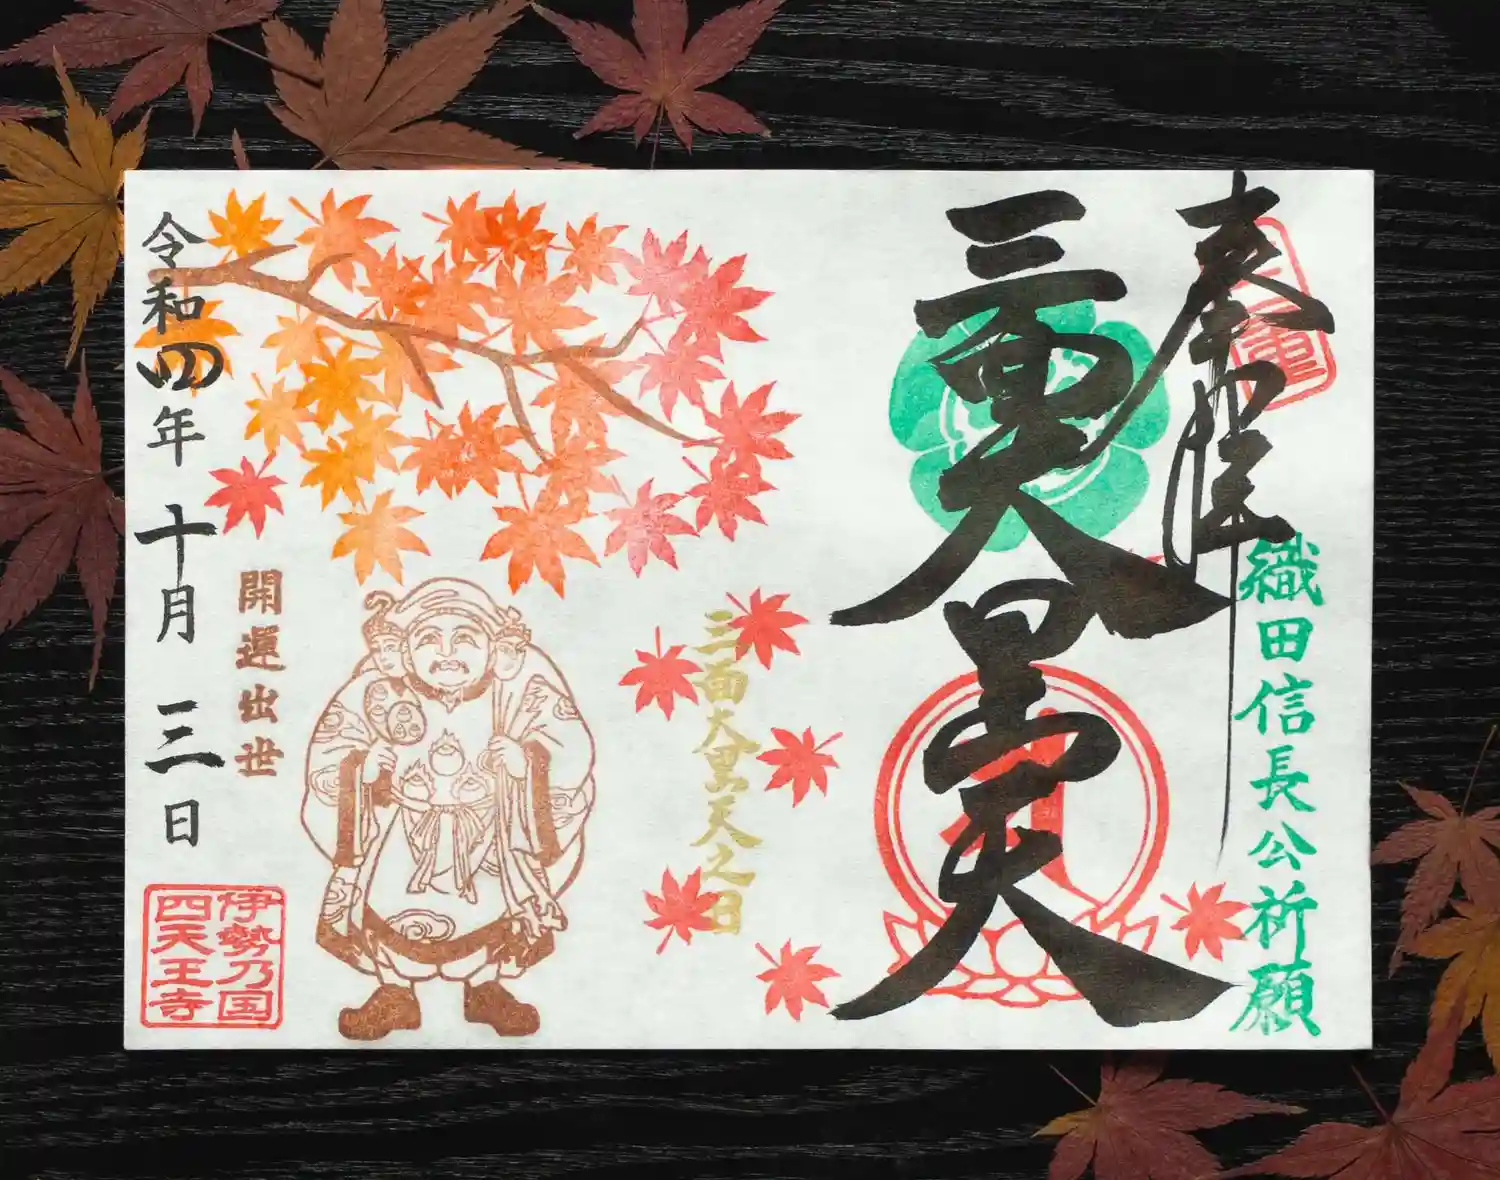 奉拝
織田信長公祈願
三面大黒天
三面大黒天之日
開運出世
令和四年 十月 三日
伊勢乃国
四天王寺